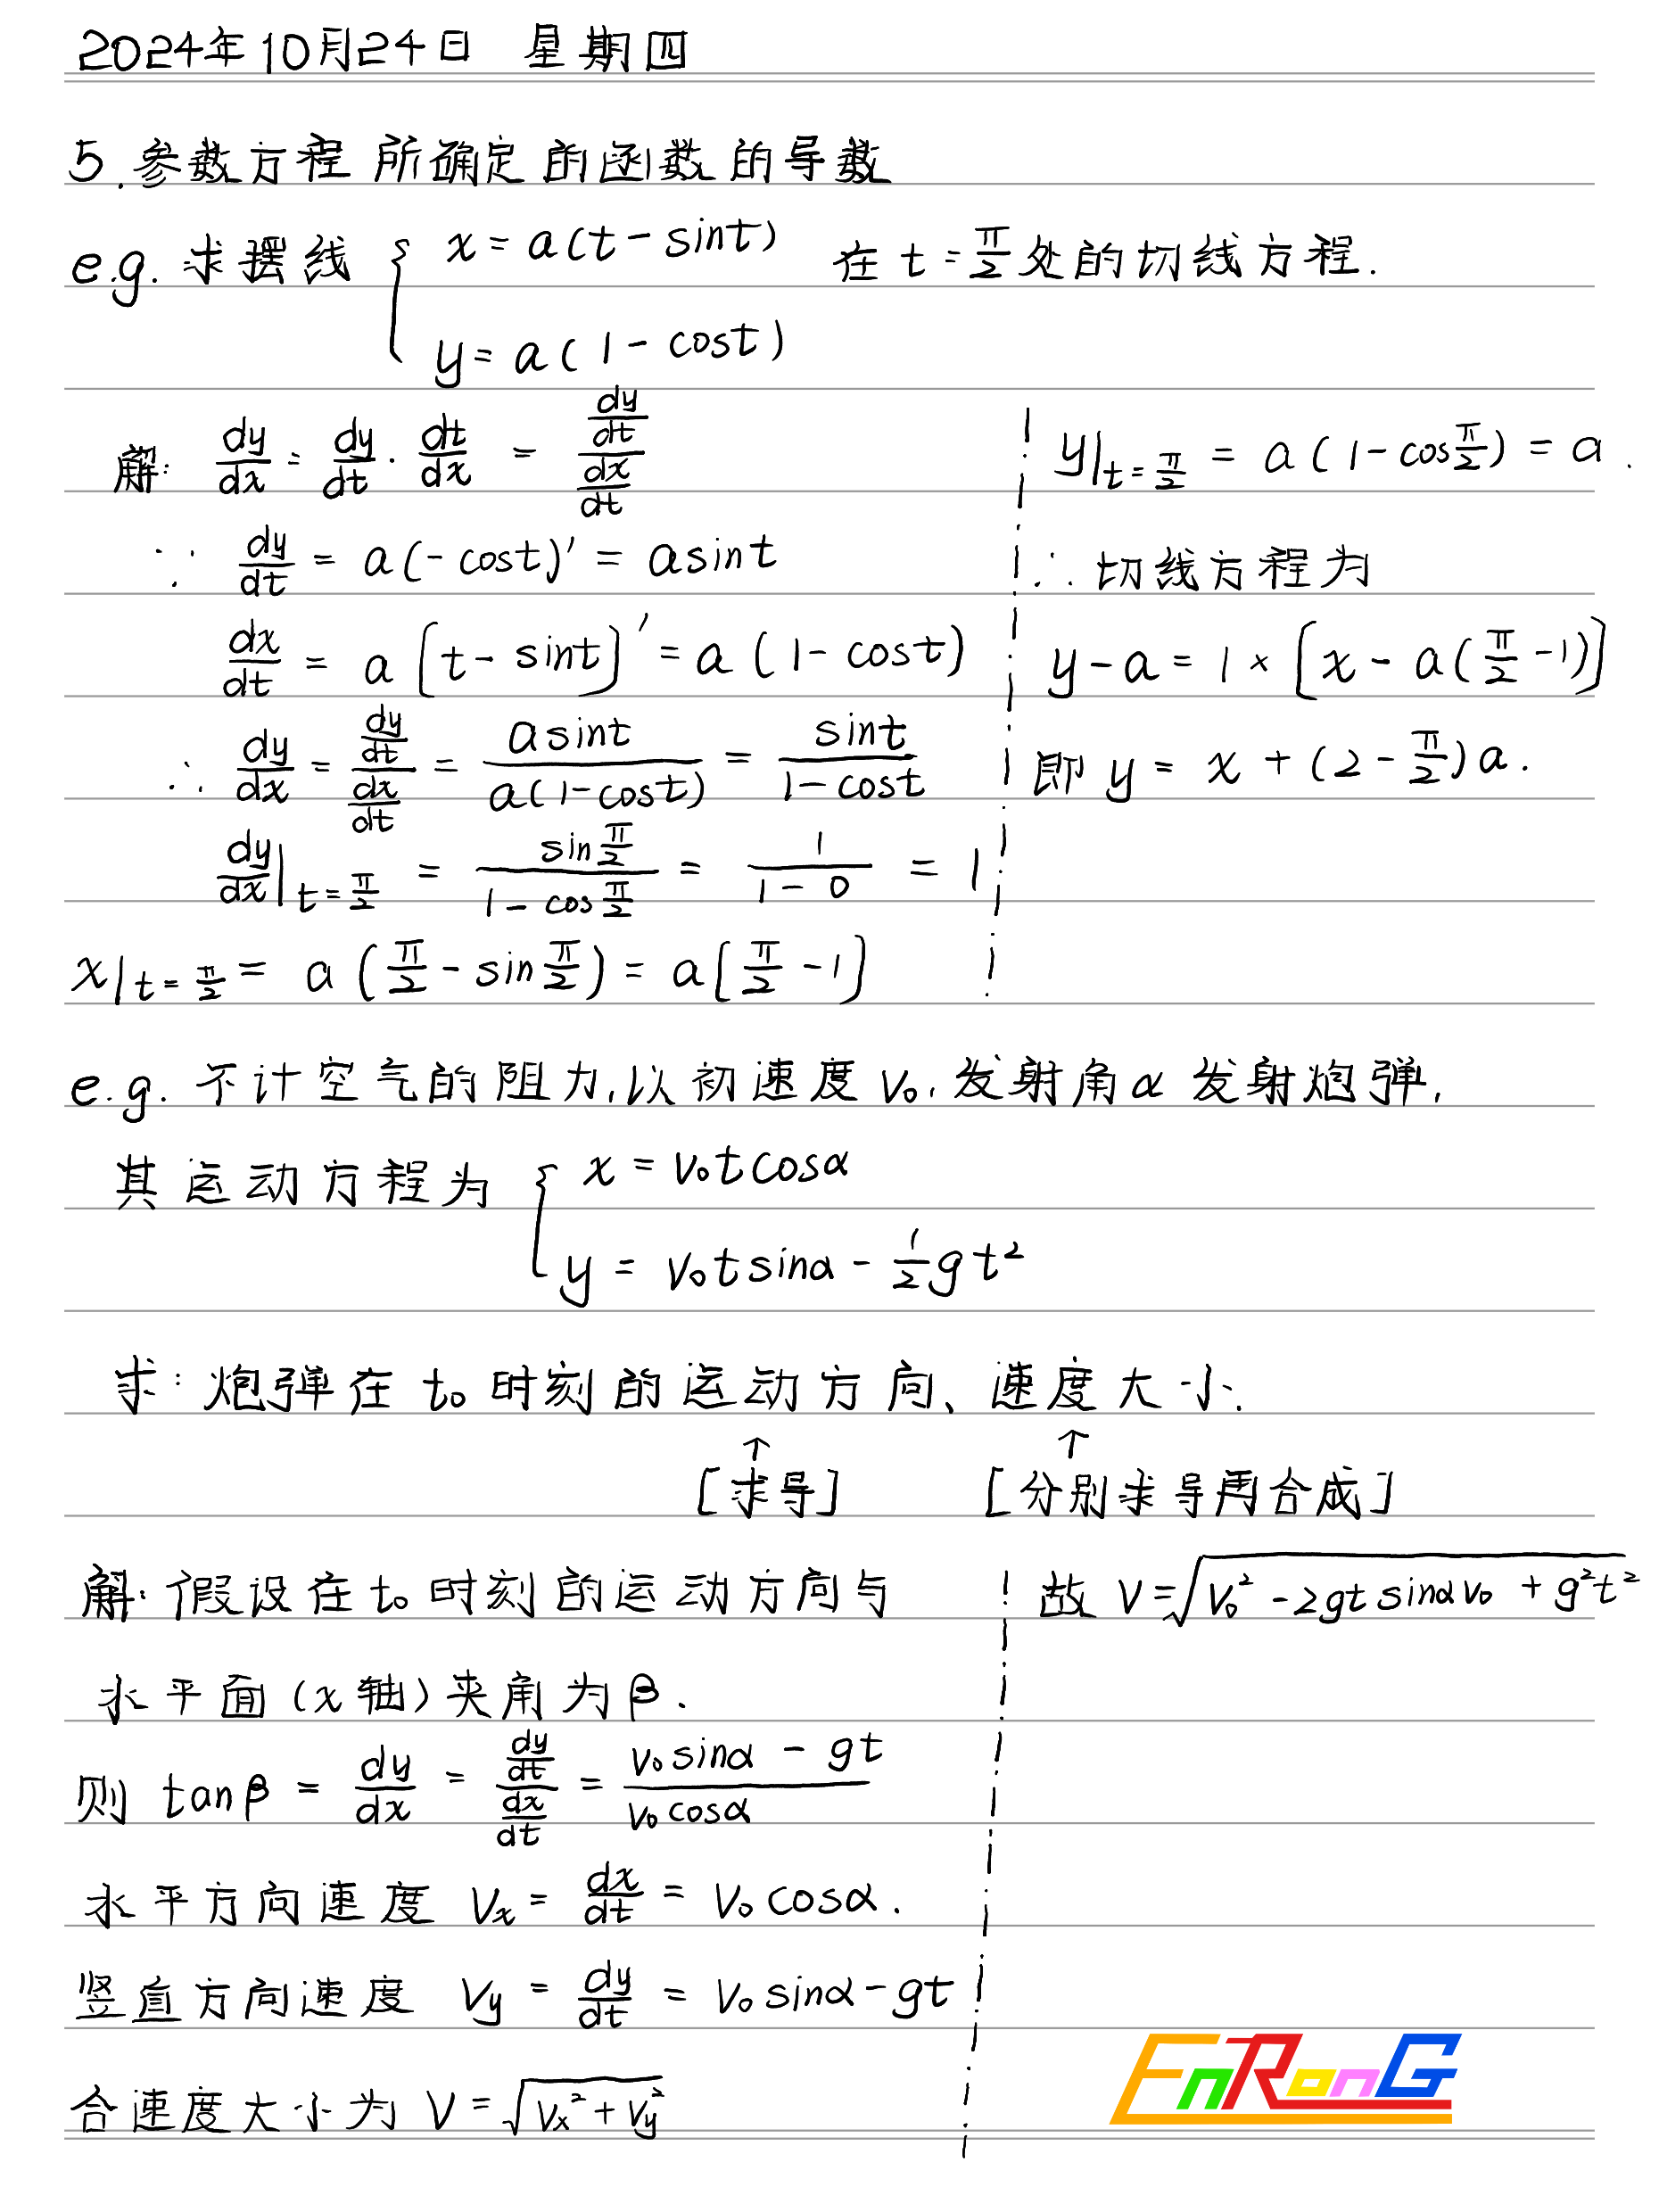 2024年10月24日 星期四
5.参数方程所确定的函数的导数
e.g. 求摆线 { x = a(t - sint)
y = a(1 - cost)
在 t = π/2 处的切线方程.
解: dy/dx = dy/dt · dt/dx = (dy/dt)/(dx/dt)
∵ dy/dt = a(-cost)' = asint
dx/dt = a[t - sint]' = a(1 - cost)
∴ dy/dx = (dy/dt)/(dx/dt) = asint/(a(1-cost)) = sint/(1-cost)
dy/dx|t=π/2 = sin π/2/(1 - cos π/2) = 1/(1-0) = 1
x|t=π/2 = a(π/2 - sin π/2) = a[π/2 - 1]
y|t=π/2 = a(1 - cos π/2) = a.
∴ 切线方程为
y - a = 1 × [x - a(π/2 - 1)]
即 y = x + (2 - π/2)a.
e.g. 不计空气的阻力,以初速度 v₀,发射角α 发射炮弹,
其运动方程为 { x = v₀tcosα
y = v₀tsinα - 1/2 gt²
求: 炮弹在 t₀ 时刻的运动方向、速度大小.
↑ ↑
[求导] [分别求导再合成]
解: 假设在 t₀ 时刻的运动方向与
水平面(x轴)夹角为β.
则 tanβ = dy/dx = (dy/dt)/(dx/dt) = (v₀sinα - gt)/(v₀cosα)
水平方向速度 Vx = dx/dt = V₀cosα.
竖直方向速度 Vy = dy/dt = V₀sinα - gt
合速度大小为 V = √(Vx² + Vy²)
故 V = √(V₀² - 2gtsinαv₀ + g²t²)
EnRonG